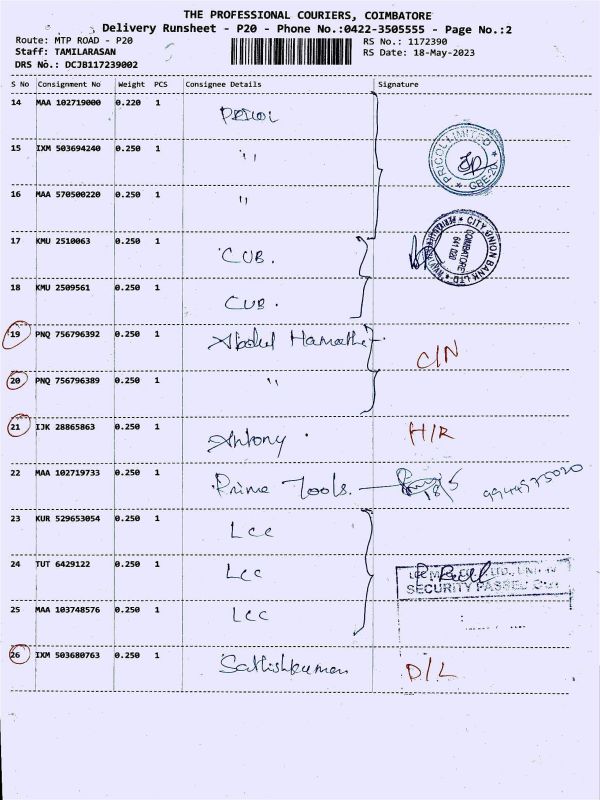 THE PROFESSIONAL COURIERS, COIMBATORE
Delivery Runsheet - P20 - Phone No.:0422-3505555 - Page No.:2
Route: MTP ROAD - P20 RS No.: 1172390
Staff: TAMILARASAN RS Date: 18-May-2023
DRS No.: DCJB117239002
S No Consignment No Weight PCS Consignee Details Signature
14 MAA 102719000 0.220 1 PRICOL
15 IXM 503694240 0.250 1 "
PRICOL LIMITED * CBE-20 *
16 MAA 570500220 0.250 1 "
17 KMU 2510063 0.250 1 CUB.
CITY UNION BANK LTD
COIMBATORE
641 020
18 KMU 2509561 0.250 1 CUB.
19 PNQ 756796392 0.250 1 Abdul
C/N
20 PNQ 756796389 0.250 1 "
21 IJK 28865863 0.250 1 Antony. H/R
22 MAA 102719733 0.250 1 Prime Tools. 18/5 9944975020
23 KUR 529653054 0.250 1 LCC
24 TUT 6429122 0.250 1 LCC
SECURITY PASSED
25 MAA 103748576 0.250 1 LCC
26 IXM 503680763 0.250 1 Sathishkumar D/L